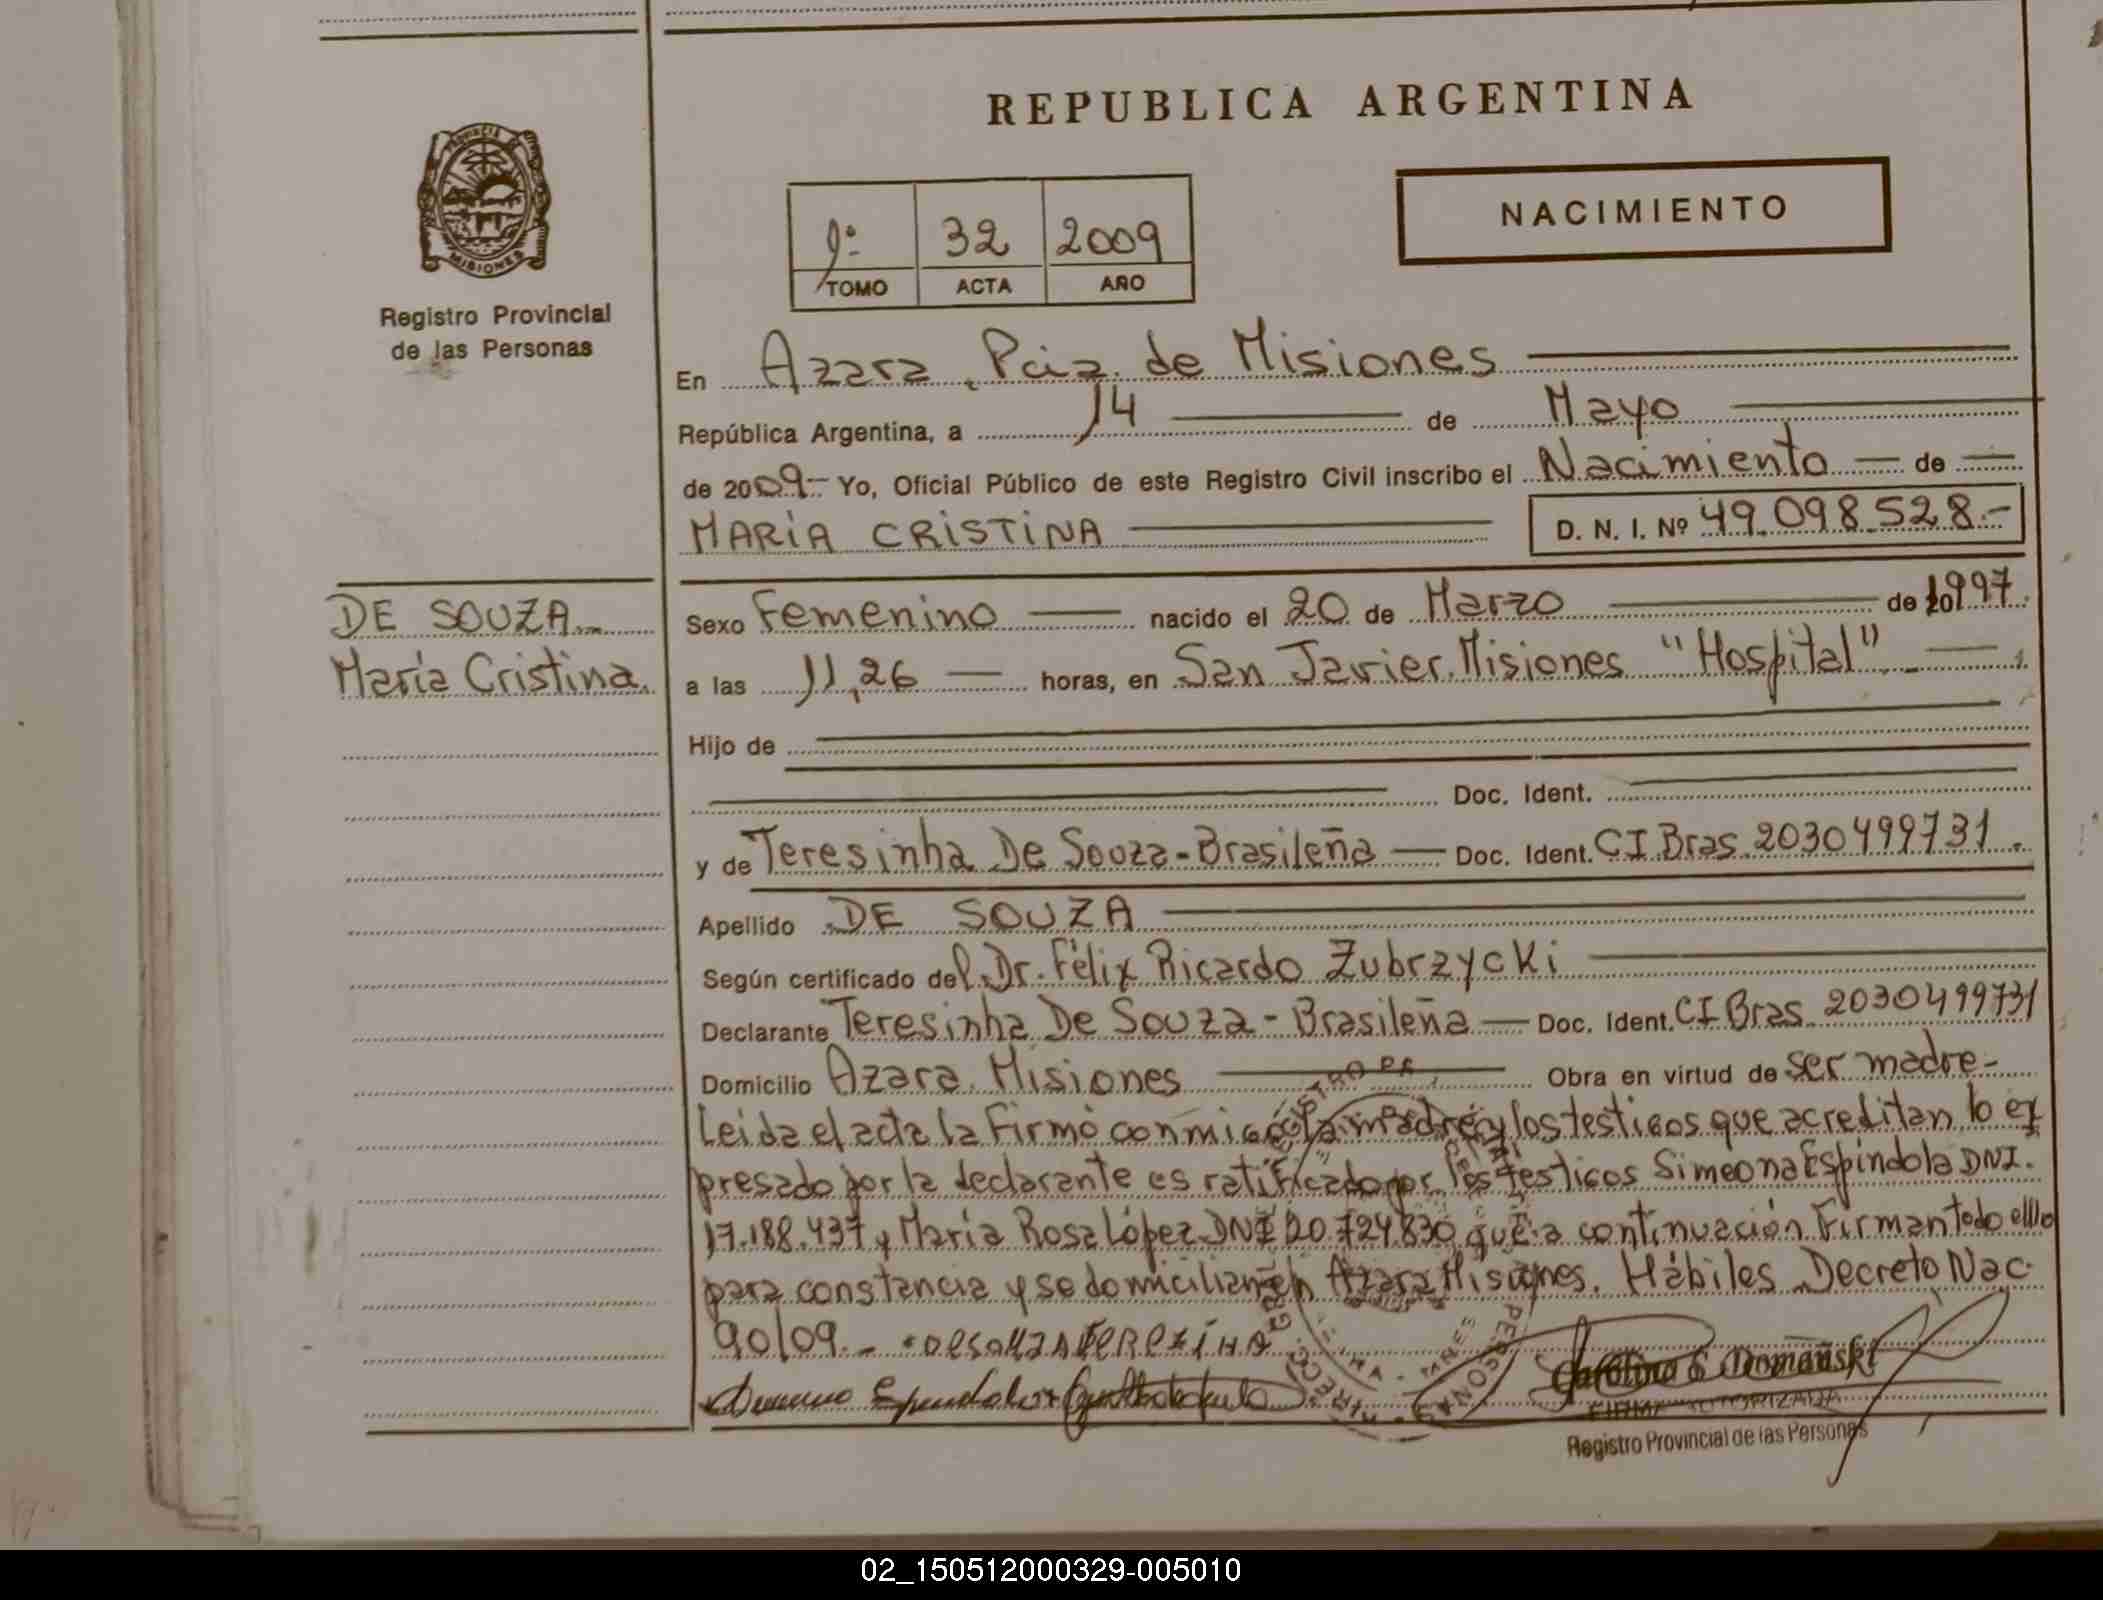 REPUBLICA ARGENTINA
PROVINCIA
MISIONES
Registro Provincial
de las Personas
1º 32 2009
TOMO ACTA AÑO
NACIMIENTO
En Azara, Pcia. de Misiones
República Argentina, a 14 de Mayo
de 2009- Yo, Oficial Público de este Registro Civil inscribo el Nacimiento de
MARIA CRISTINA D. N. I. Nº 49.098.528.-
DE SOUZA
María Cristina.
Sexo Femenino nacido el 20 de Marzo de 1997.
a las 11,26 horas, en San Javier, Misiones "Hospital".
Hijo de
Doc. Ident.
y de Teresinha De Souza-Brasileña Doc. Ident. CI Bras. 2030499731.
Apellido DE SOUZA
Según certificado del Dr. Félix Ricardo Zubrzycki
Declarante Teresinha De Souza-Brasileña Doc. Ident. CI Bras. 2030499731
Domicilio Azara. Misiones Obra en virtud de ser madre-
Leida el acta la Firmó conmigo la madre y los testigos que acreditan lo ex
presado por la declarante es ratificado por los testigos Simeona Espíndola DNI.
17.188.437 y María Rosa López DNI 20.724.830 que a continuación Firman todo ello
para constancia y se domicilian en Azara Misiones. Hábiles Decreto Nac.
90/09.-
Carolina S. Domañski
FIRMA AUTORIZADA
Registro Provincial de las Personas
02_150512000329-005010